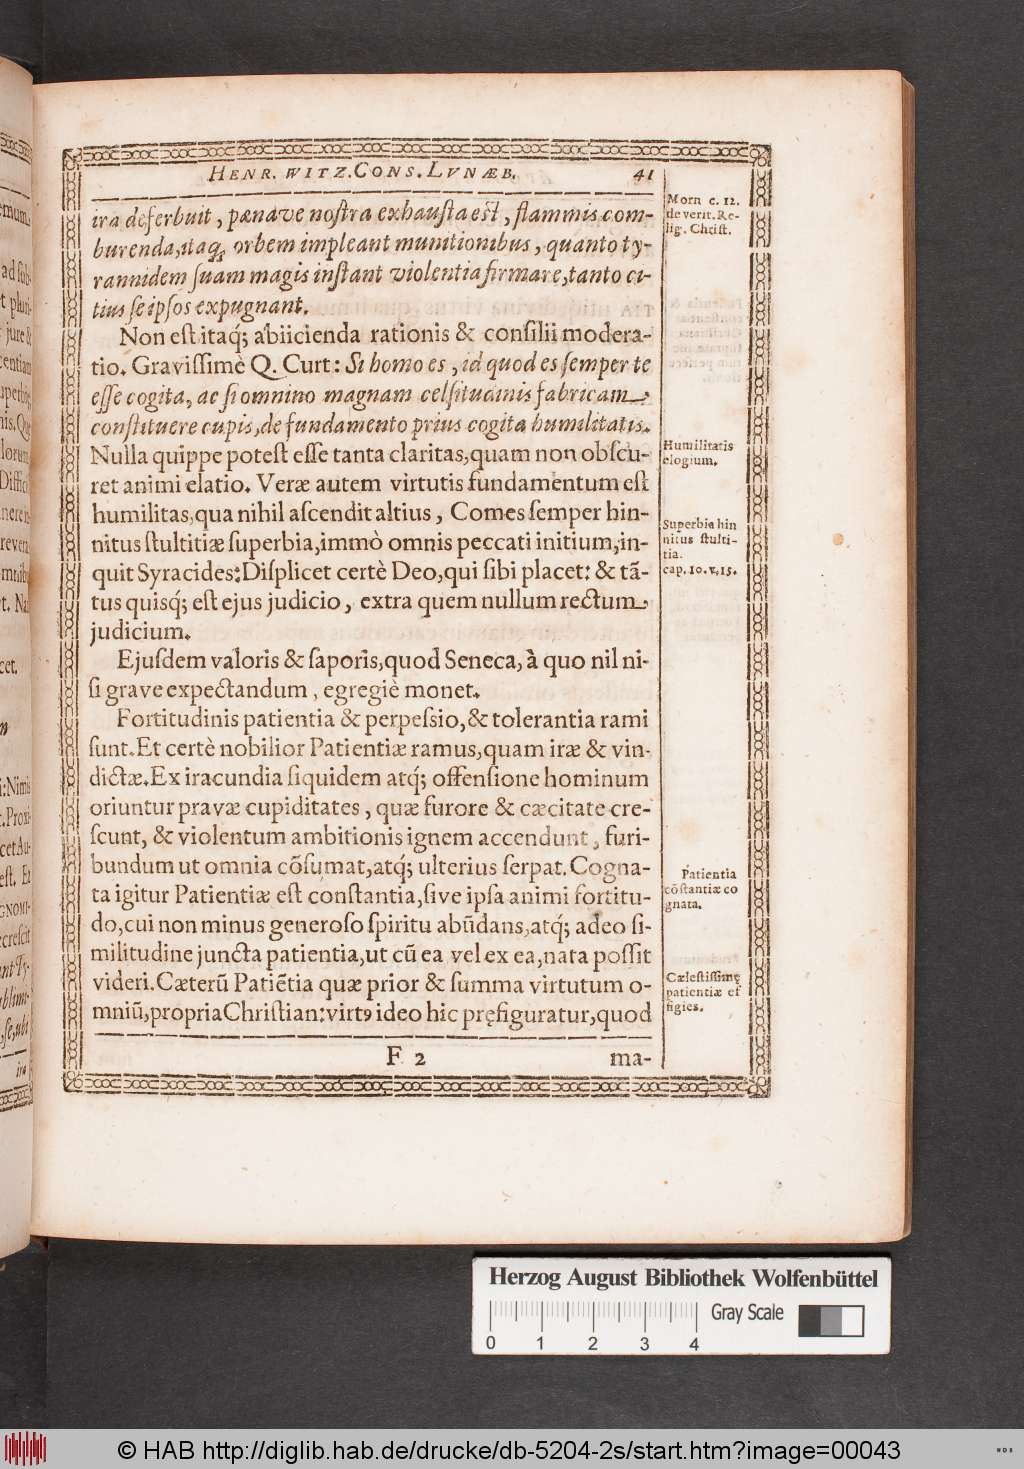 HENR. WITZ. CONS. LVNÆB. 41
ira deferbuit, pœnave nostra exhausta est, flammis com-
burenda, itaq; orbem impleant munitionibus, quanto ty-
rannidem suam magis instant violentia firmare, tanto ci-
tius se ipsos expugnant.
Morn c. 12.
de verit. Re-
lig. Christ.
Non est itaq́; abiicienda rationis & consilii modera-
tio. Gravissimè Q. Curt: Si homo es, id quod es semper te
esse cogita, ac si omnino magnam celsitudinis fabricam
constituere cupis, de fundamento prius cogita humilitatis.
Nulla quippe potest esse tanta claritas, quam non obscu-
ret animi elatio. Veræ autem virtutis fundamentum est
humilitas, qua nihil ascendit altius, Comes semper hin-
nitus stultitiæ superbia, immò omnis peccati initium, in-
quit Syracides: Displicet certè Deo, qui sibi placet: & tã-
tus quisq́; est ejus judicio, extra quem nullum rectum
judicium.
Humilitatis
elogium.
Superbia hin
nitus stulti-
tia.
cap. 10. v. 15.
Ejusdem valoris & saporis, quod Seneca, à quo nil ni-
si grave expectandum, egregiè monet.
Fortitudinis patientia & perpessio, & tolerantia rami
sunt. Et certè nobilior Patientiæ ramus, quam iræ & vin-
dictæ. Ex iracundia siquidem atq́; offensione hominum
oriuntur pravæ cupiditates, quæ furore & cæcitate cre-
scunt, & violentum ambitionis ignem accendunt, furi-
bundum ut omnia cõsumat, atq́; ulterius serpat. Cogna-
ta igitur Patientiæ est constantia, sive ipsa animi fortitu-
do, cui non minus generoso spiritu abũdans, atq́; adeo si-
militudine juncta patientia, ut cũ ea vel ex ea, nata possit
videri. Cæterũ Patiẽtia quæ prior & summa virtutum o-
mniũ, propria Christian: virtꝰ ideo hic pręfiguratur, quod
Patientia
cõstantiæ co
gnata.
Cælestissimę
patientiæ ef
figies.
F 2 ma-
Herzog August Bibliothek Wolfenbüttel
Gray Scale
0 1 2 3 4
© HAB http://diglib.hab.de/drucke/db-5204-2s/start.htm?image=00043